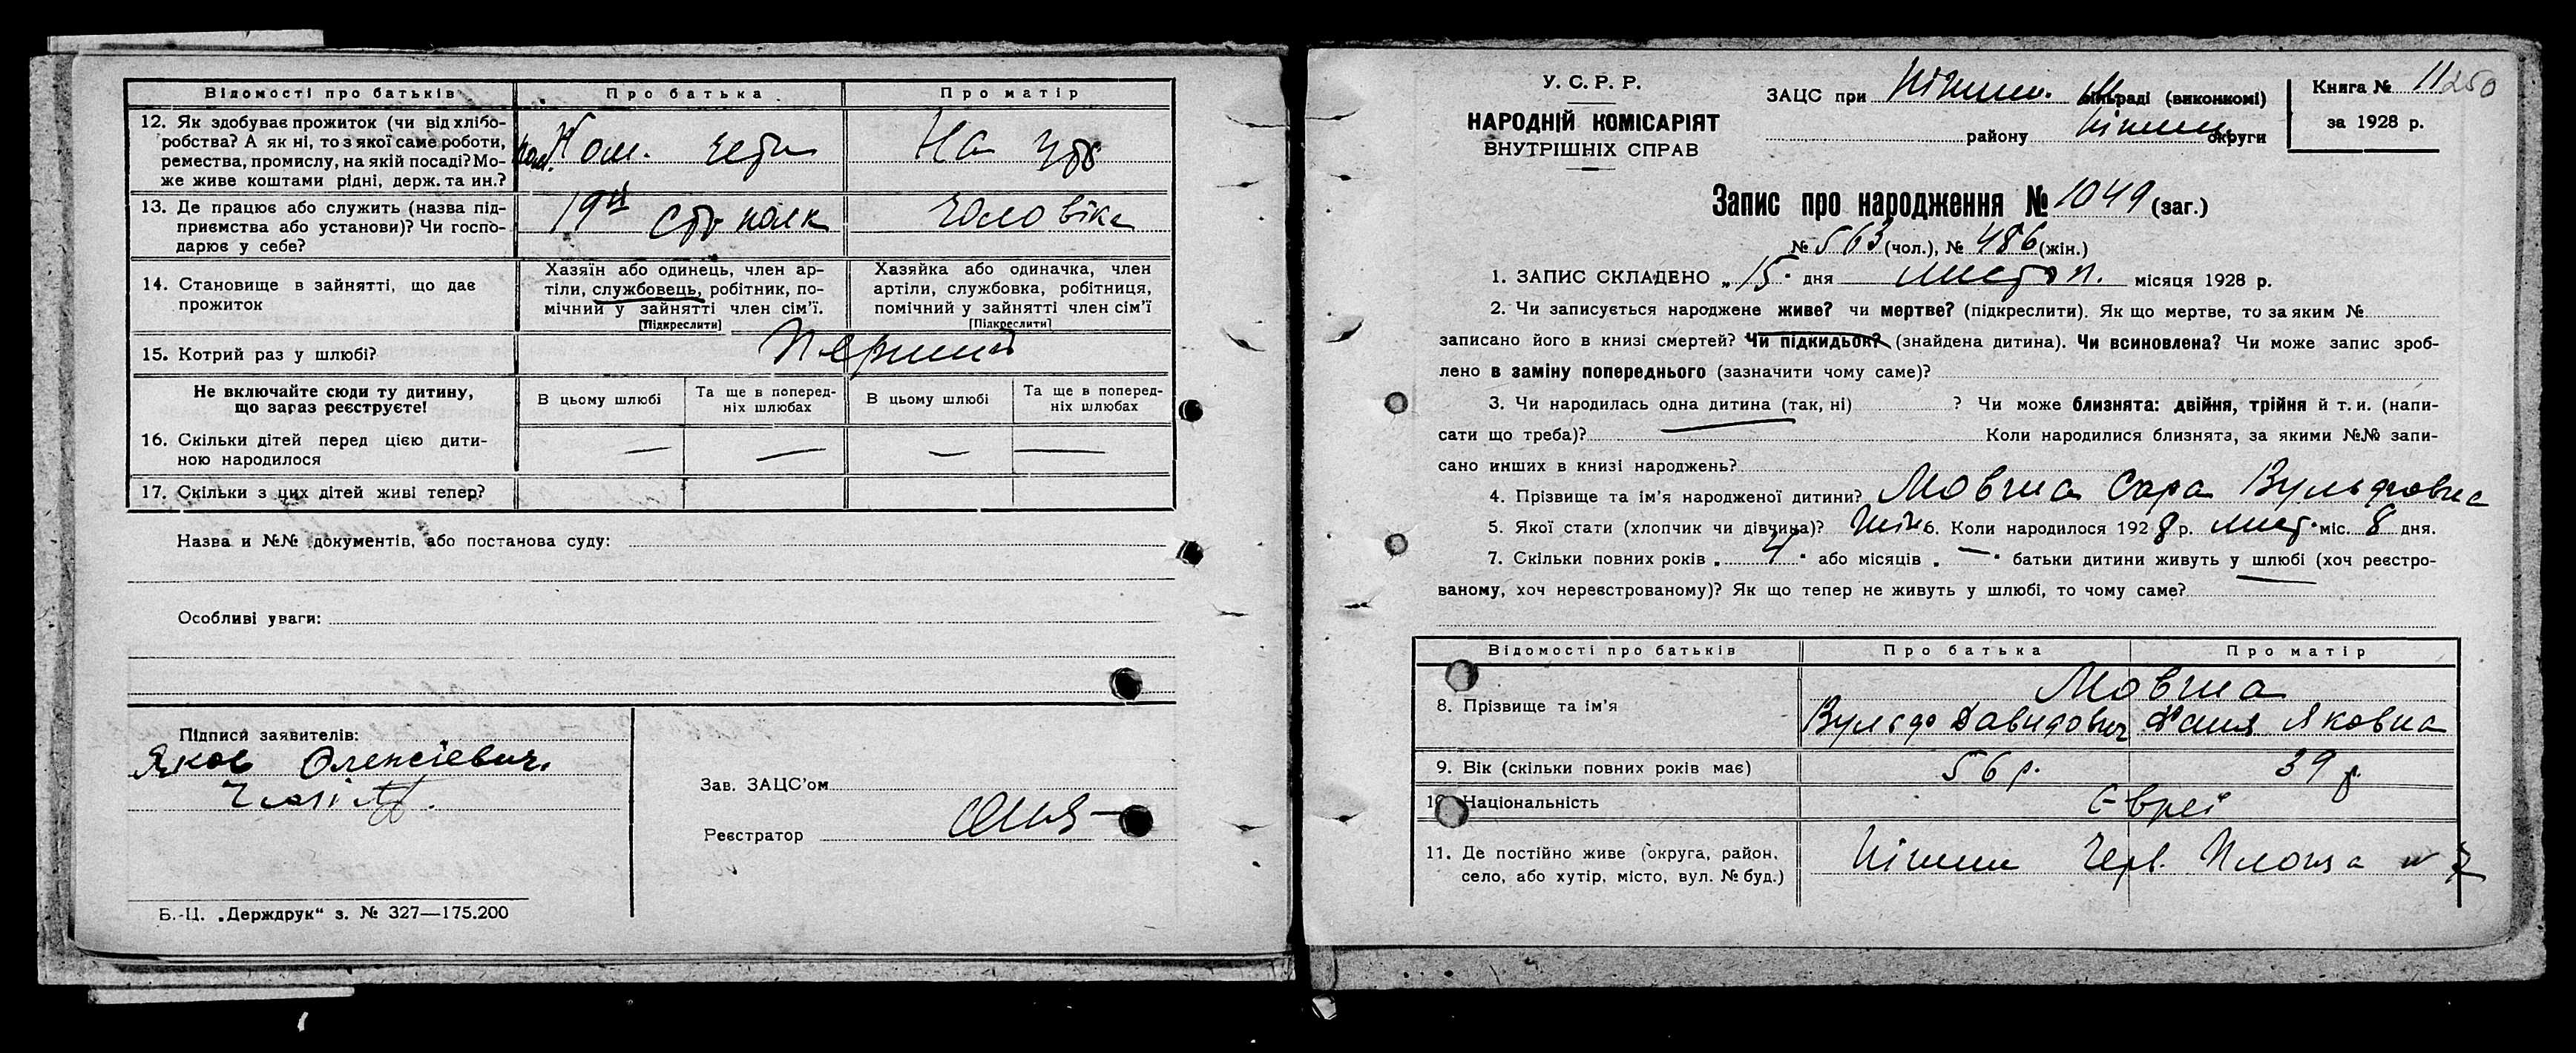 Відомості про батьків Про батька Про матір
12. Як здобуває прожиток (чи від хлібо-
робства? А як ні, то з якої саме роботи,
ремества, промислу, на якій посаді? Мо-
же живе коштами рідні, держ. та ин.?
На
13. Де працює або служить (назва під-
приємства або установи)? Чи госпо-
дарює у себе?
19й полк
чоловіка
14. Становище в зайнятті, що дає
прожиток
Хазяїн або одинець, член ар-
тілі, службовець, робітник, по-
мічний у зайнятті член сім'ї.
[Підкреслити]
Хазяйка або одиначка, член
артілі, службовка, робітниця,
помічний у зайнятті член сім'ї
[Підкреслити]
15. Котрий раз у шлюбі? Перший
Не включайте сюди ту дитину,
що зараз реєструєте!
В цьому шлюбі
Та ще в поперед-
ніх шлюбах
В цьому шлюбі
Та ще в поперед-
ніх шлюбах
16. Скільки дітей перед цією дити-
ною народилося — — — —
17. Скільки з цих дітей живі тепер?
Назва и №№ документів, або постанова суду:
Особливі уваги:
Підписи заявителів:
Яков Олексієвич
Зав. ЗАЦС'ом
Реєстратор
Б.-Ц. „Держдрук“ з. № 327—175.200
У. С. Р. Р.
НАРОДНІЙ КОМІСАРІЯТ
ВНУТРІШНІХ СПРАВ
ЗАЦС при Ніжин. М раді (виконкомі)
району Ніжин округи
Книга № 11 250
за 1928 р.
Запис про народження № 1049 (заг.)
№ 563 (чол.), № 486 (жін.)
1. ЗАПИС СКЛАДЕНО „15“ дня листоп. місяця 1928 р.
2. Чи записується народжене живе? чи мертве? (підкреслити). Як що мертве, то за яким №
записано його в книзі смертей? Чи підкидьок? (знайдена дитина). Чи всиновлена? Чи може запис зроб-
лено в заміну попереднього (зазначити чому саме)?
3. Чи народилась одна дитина (так, ні) ? Чи може близнята: двійня, трійня й т. и. (напи-
сати що треба)? Коли народилися близнята, за якими №№ запи-
сано инших в книзі народжень?
4. Прізвище та ім'я народженої дитини? Мовша Сара Вульфовна
5. Якої стати (хлопчик чи дівчина)? Жін 6. Коли народилося 1928 р. лист. міс. 8 дня.
7. Скільки повних років „4“ або місяців „—“ батьки дитини живуть у шлюбі (хоч реєстро-
ваному, хоч нереєстрованому)? Як що тепер не живуть у шлюбі, то чому саме?
Відомості про батьків Про батька Про матір
8. Прізвище та ім'я
Мовша
Вульф Давидович Фаня Яковна
9. Вік (скільки повних років має) 56 р. 39 р.
10. Національність Євреї
11. Де постійно живе (округа, район,
село, або хутір, місто, вул. № буд.)
Ніжин Черв. Площа № 7